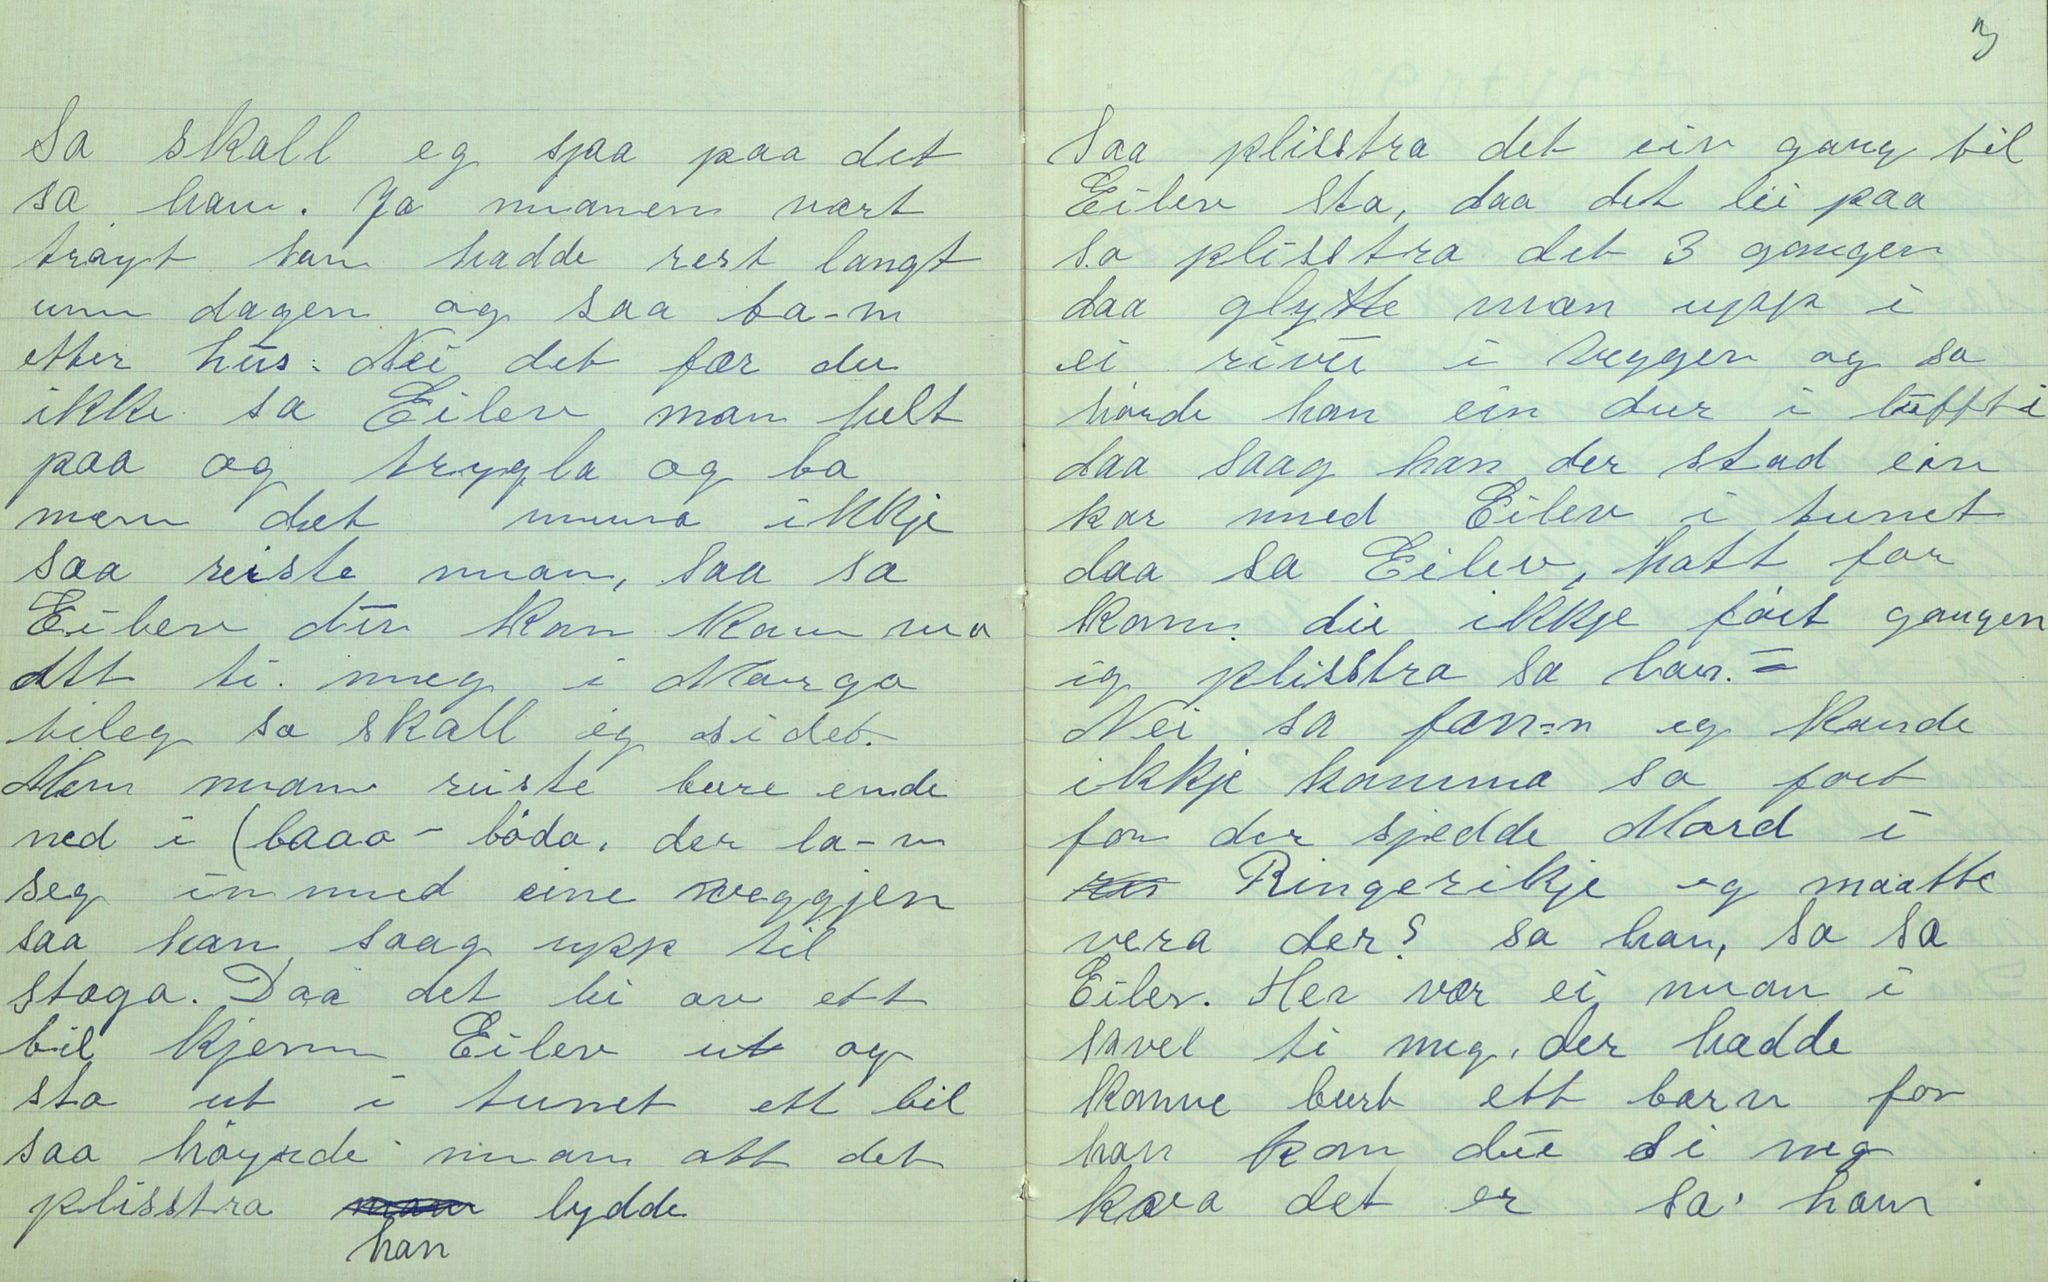 Sa skall eg sjaa paa det
sa han. Ja manen vart
tråyt han hadde rest langt
um dagen og saa ba-n
etter hus. Nei det fær du
ikke sa Eilev man helt
paa og trygla og ba
men det muna ikkje
saa reiste man, saa sa
Eilev du kan kom ma
att ti meg i Morgo
tileg sa skall eg si det.
Men man reiste bere ende
ned i (baao - böda. der la-n
seg in med eine veggjen
saa han saag upp til
stoga. Daa det lei av ett
bil kjem Eilev ut og
sto ut i tunet ett bil
saa höyrde man att det
plisstra han lydde
3
Saa plisstra det ein gang til
Eilev sto, daa det lei paa
so plisstra det 3 gangen
daa glytte man upp i
ei rivu i Veggen og so
hörde han ein dur i lüffti
daa saag han der stod ein
kar med Eilev i tunet
daa sa Eilev, hatt for
kom du ikkje föst gangen
eg plisstra sa han. =
Nei sa fan-n eg kunde
ikkje komma so fort
for der sjedde Mord i
Ringerikje eg maatte
vera der? sa han, so sa
Eilev. Her var ei man i
kvel ti meg. der hadde
komme burt ett barn for
han kan du si meg
kova det er sa han